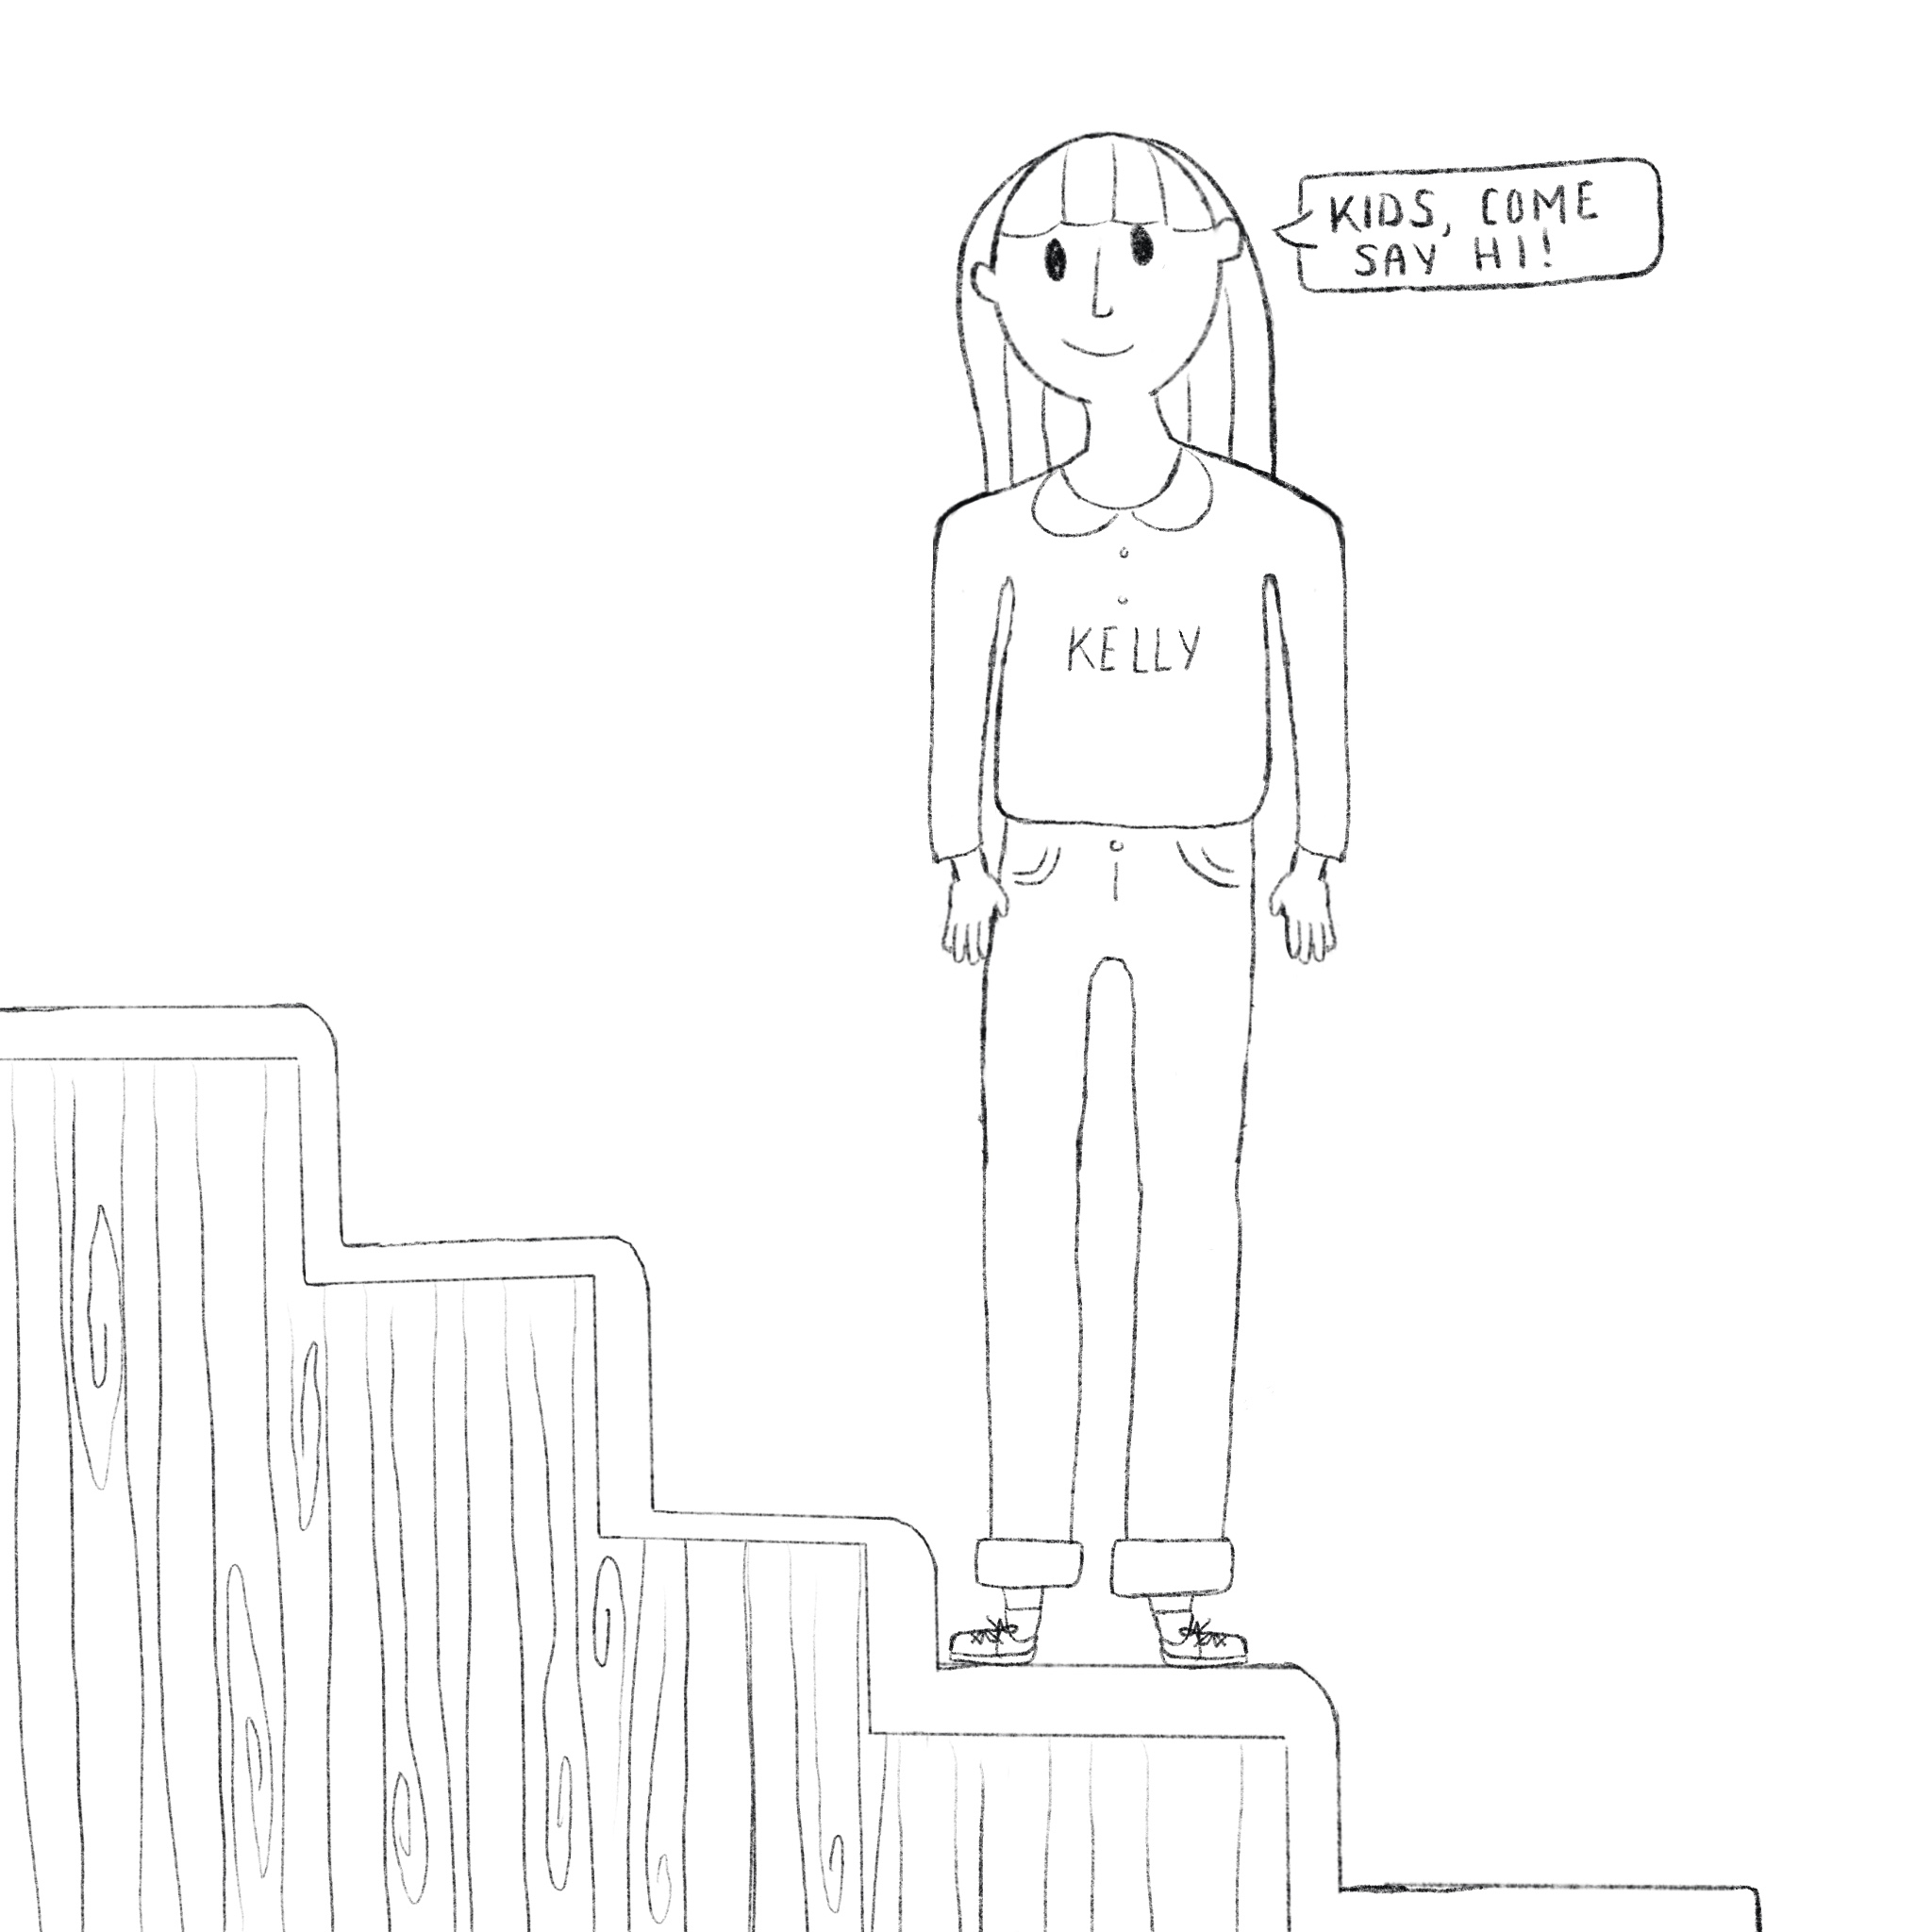 KIDS, COME
SAY HI!
KELLY